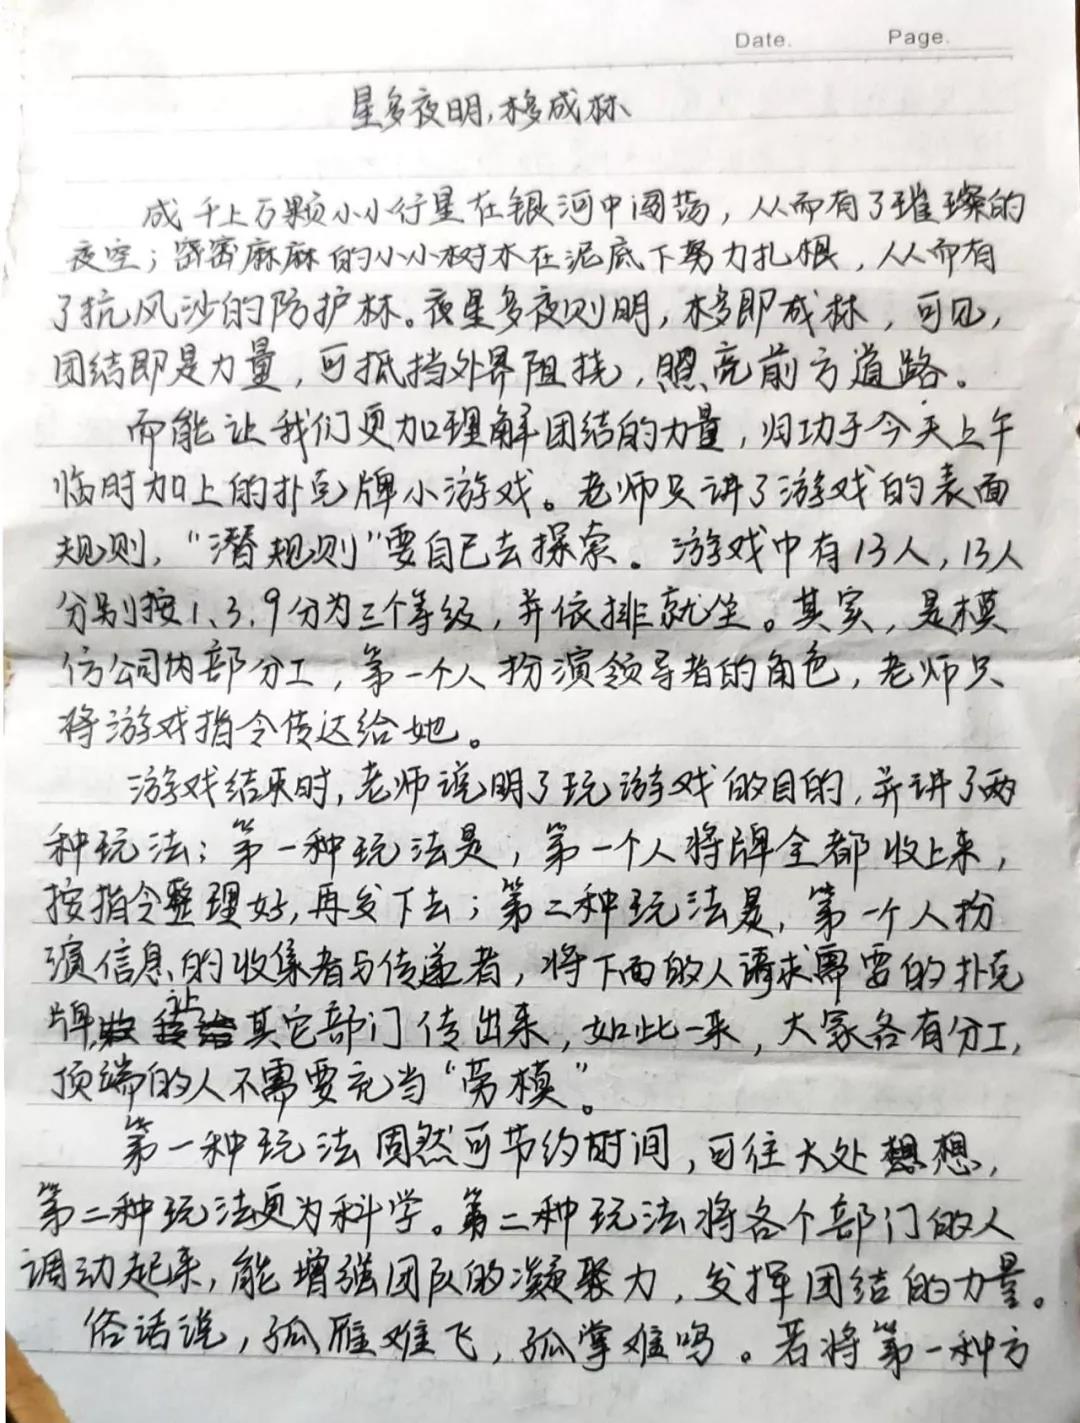 Date. Page.
星多夜明,木多成林
成千上万颗小小行星在银河中闯荡，从而有了璀璨的
夜空；密密麻麻的小小树木在泥底下努力扎根，从而有
了抗风沙的防护林。夜星多夜则明，木多即成林，可见，
团结即是力量，可抵挡外界阻挠，照亮前方道路。
而能让我们更加理解团结的力量，归功于今天上午
临时加上的扑克牌小游戏。老师只讲了游戏的表面
规则，“潜规则”要自己去探索。游戏中有13人，13人
分别按1、3、9分为三个等级，并依排就坐。其实，是模
仿公司内部分工，第一个人扮演领导者的角色，老师只
将游戏指令传达给她。
游戏结束时，老师说明了玩游戏的目的，并讲了两
种玩法；第一种玩法是，第一个人将牌全都收上来，
按指令整理好，再发下去；第二种玩法是，第一个人扮
演信息的收集者与传递者，将下面的人请求需要的扑克
牌，让其它部门传出来，如此一来，大家各有分工，
顶端的人不需要充当“劳模”。
第一种玩法固然可节约时间，可往大处想想，
第二种玩法更为科学。第二种玩法将各个部门的人
调动起来，能增强团队的凝聚力，发挥团结的力量。
俗话说，孤雁难飞，孤掌难鸣。若将第一种方